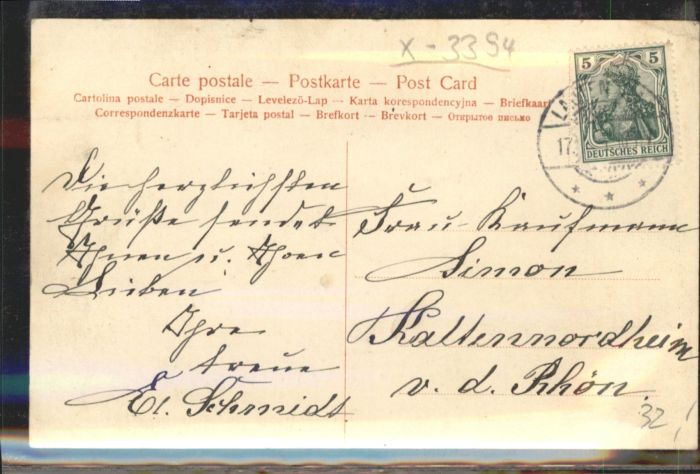 X-3394
Carte postale — Postkarte — Post Card
Cartolina postale — Dopisnice — Levelező-Lap — Karta korespondencyjna — Briefkaart
Correspondenzkarte — Tarjeta postal — Brefkort — Brevkort — Открытое письмо
5 5
DEUTSCHES REICH
17.
Die herzlichsten
Grüße sendet
Ihnen u. Ihren
Lieben
Ihre
treue
El. Schmidt
Frau Kaufmann
Simon
Kaltennordheim
v. d. Rhön.
32,